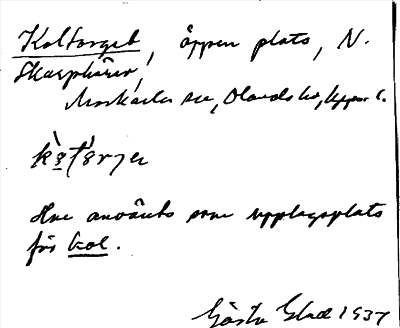 Koltorget, öppen plats, N.
Skarphäran,
Morkarla sn, Olands hd, Uppl.
Har använts som upplagsplats
för kol.
Gösta Glad 1937